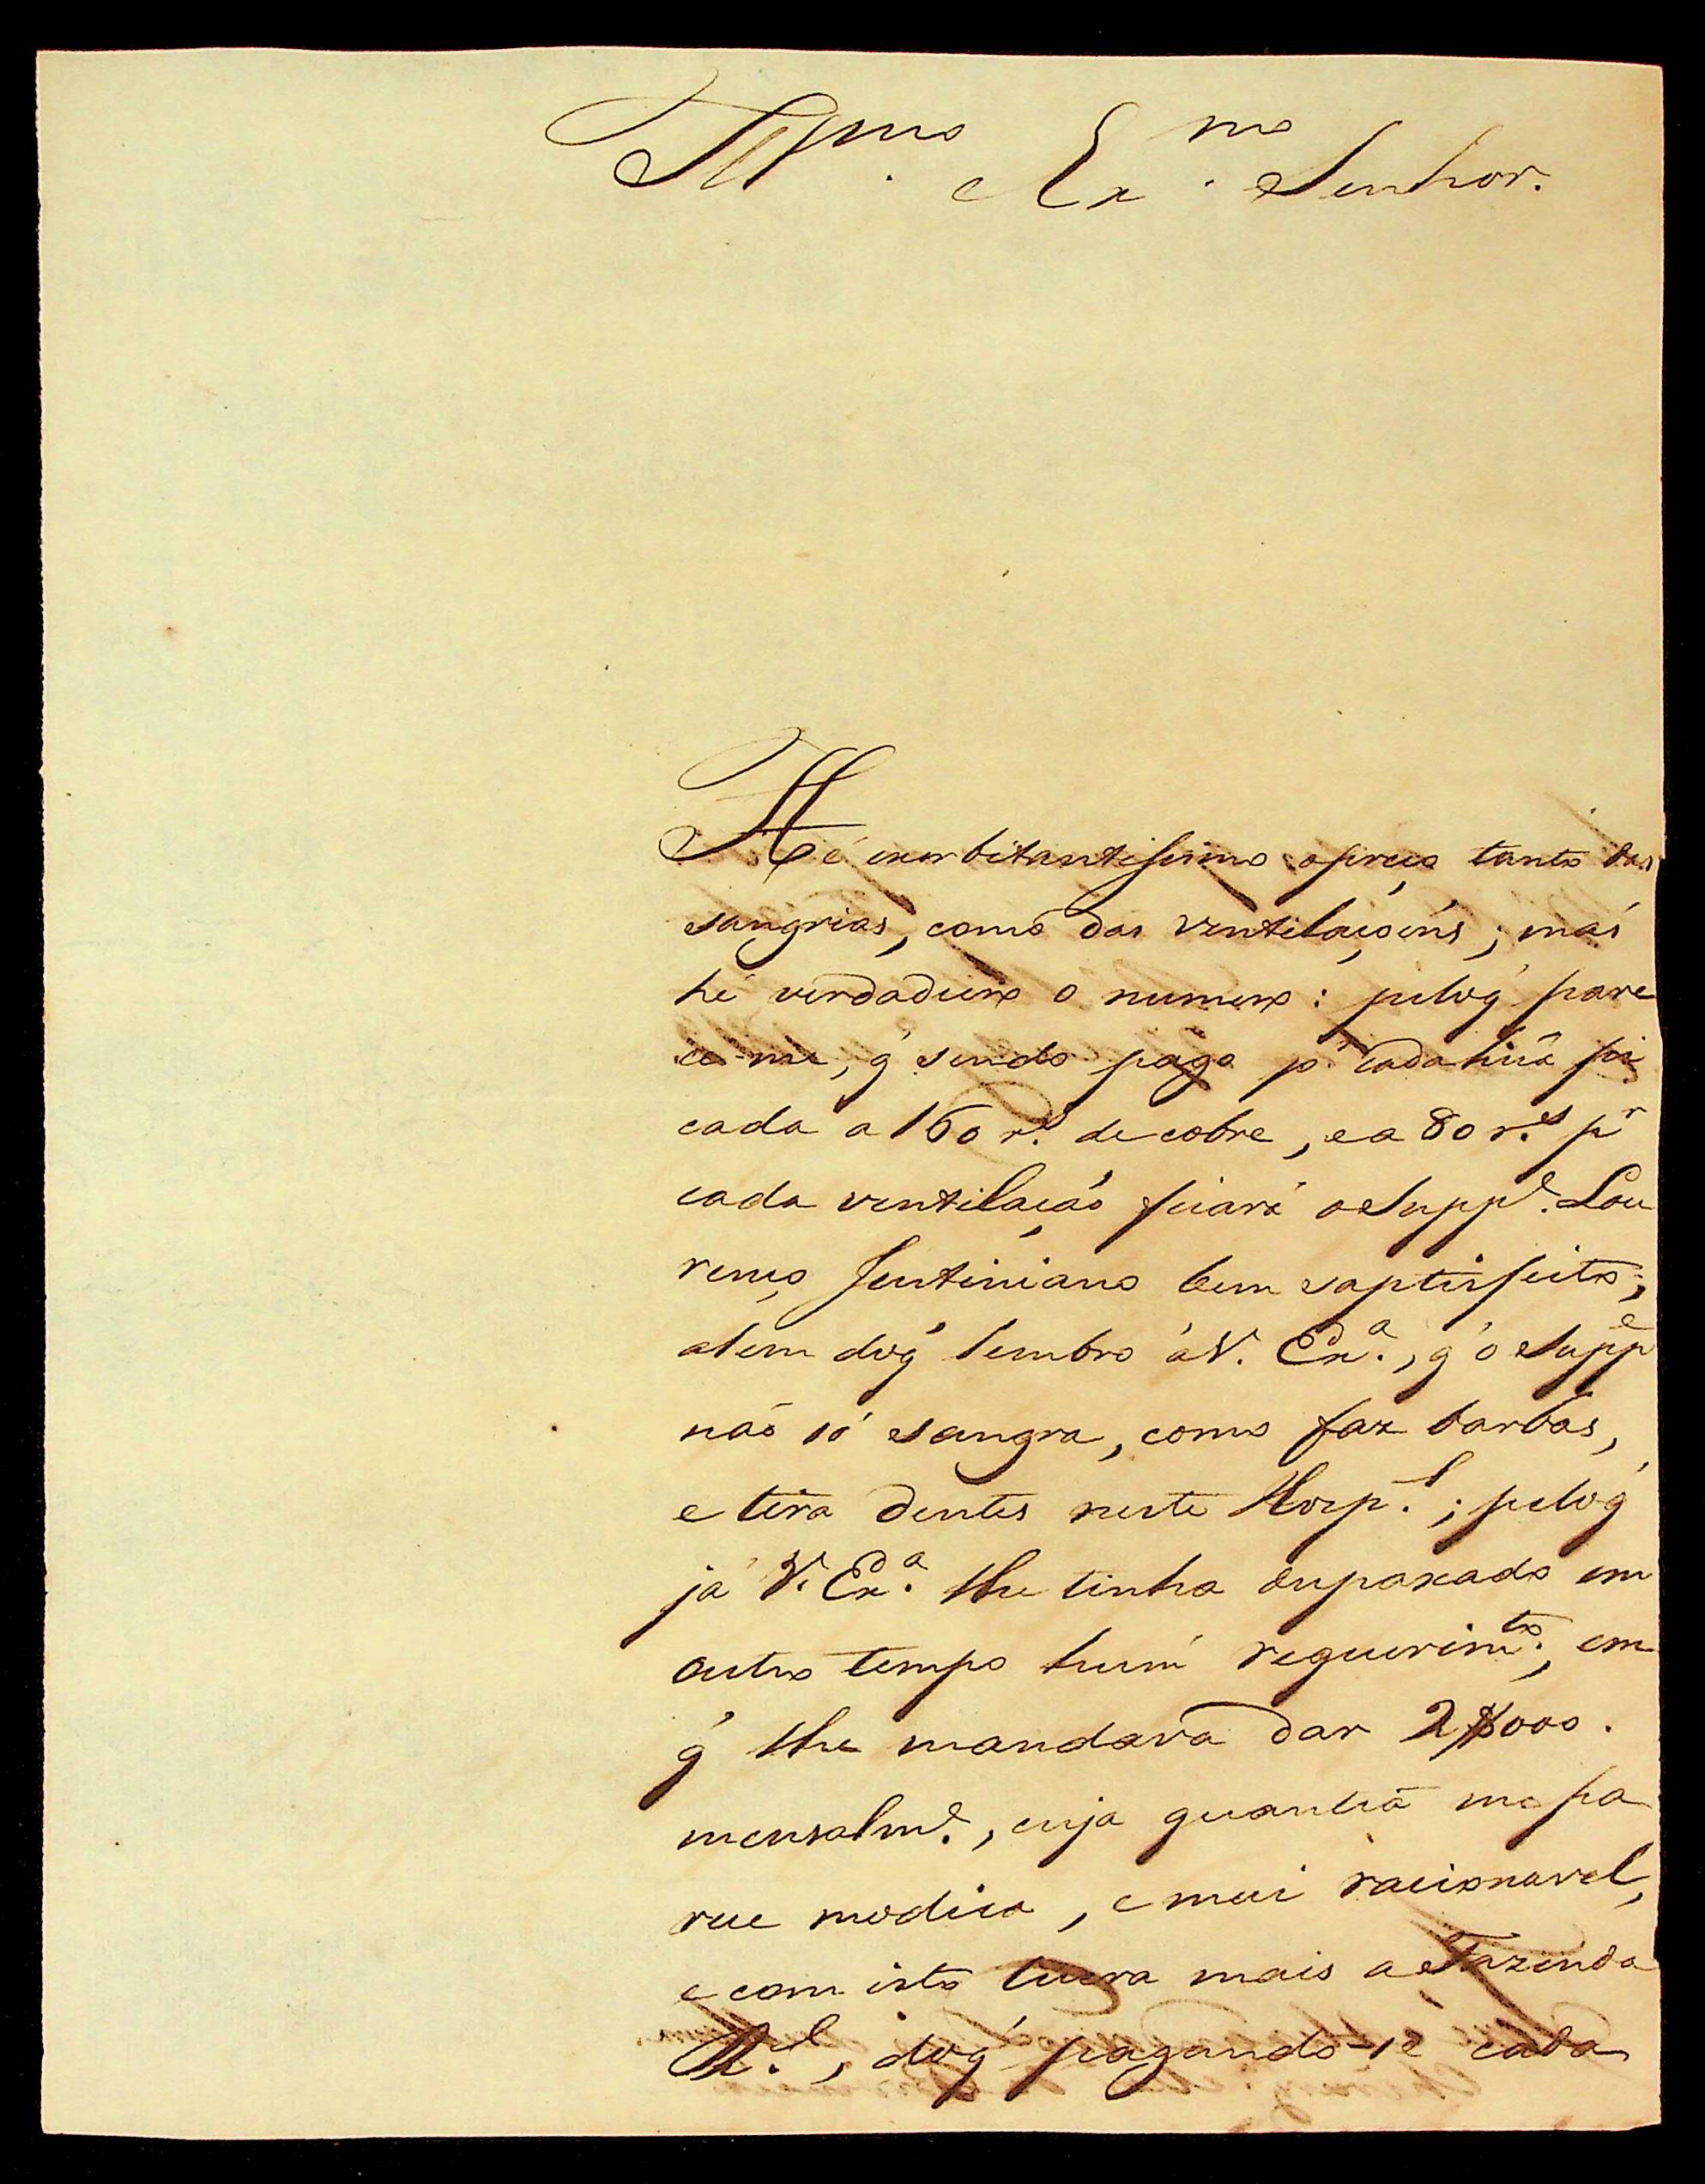 Illmo. Exmo. Senhor.
Hé exorbitantissimo o preço tanto das
sangrias, como das ventilaçoens; mas
hé verdadeiro o numero: pelo q̃ pare
ce-me, q̃ sendo pago pr. cada huã pi
cada a 160 rs. de cobre, e a 80 r.es pr
cada ventilação ficará o Suppe. Lou
renço Justiniano bem saptisfeito;
alem do q̃ lembro á V. Exa., q̃ o Suppe
não só sangra, como faz barbas,
e tira dentes neste Hosp.l; pelo q̃
já V. Exa. lhe tinha despaxado em
outro tempo hum requerimto., em
q̃ lhe mandava dar 2$000.
mensalme., cuja quantia me pa
rece modica, e mui racionavel,
e com isto lucra mais a Fazenda
R.l, do q̃ pagando-se cada